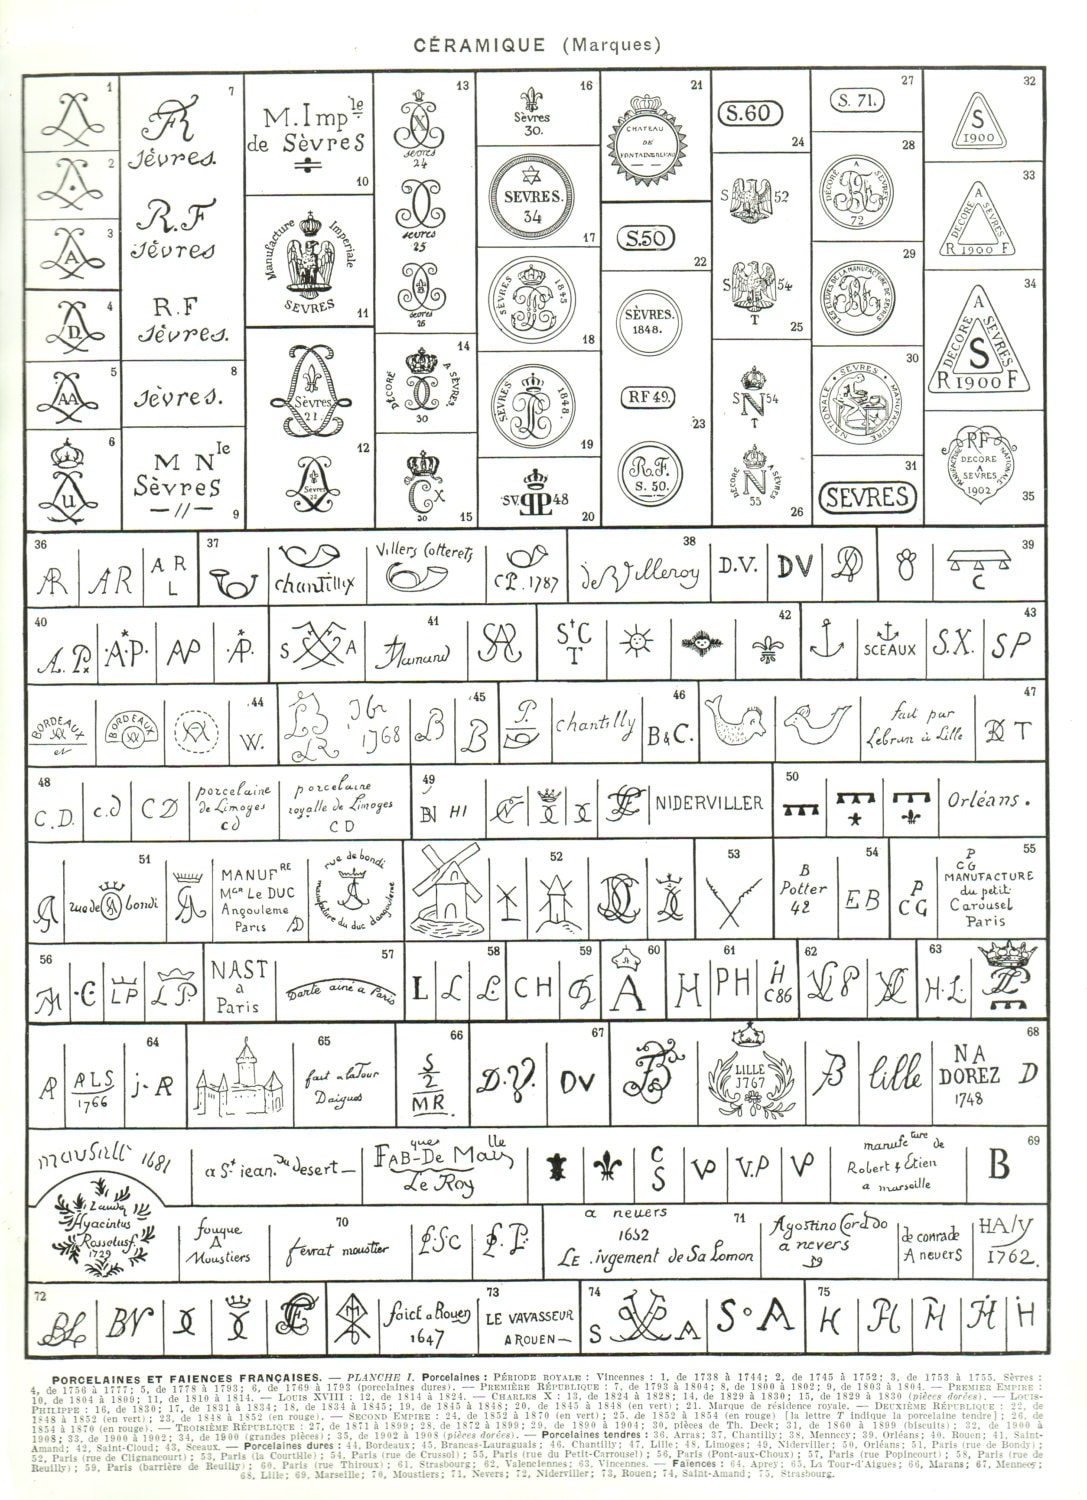 CÉRAMIQUE (Marques)
1
2
3
A
4
D
5
AA
6
u
7
R
Sèvres.
R.F
Sèvres
R.F
Sèvres.
8
Sèvres.
M Nle
Sèvres
—//—
9
M.Imple
de Sèvres
10
Manufacture Imperiale
SEVRES
11
Sèvres
21
12
Sèvres
22
13
N
sevres
24
sevres
25
sevres
26
14
DÉCORÉ A SÈVRES
30
C X
30
15
16
Sèvres
30.
SEVRES.
34
17
SÈVRES 1845
18
SÈVRES 1848.
19
SV. 48
20
21
CHATEAU
DE
FONTAINEBLEAU
S.50
22
SÈVRES.
1848.
RF 49.
23
R.F.
S. 50.
S.60
24
S 52
S 54
T
25
S N 54
T
DÉCORÉ A SÈVRES
N
55
26
27
S. 71.
28
DÉCORÉ A SÈVRES
72
29
30
NATIONALE • SÈVRES • MANUFACTURE
31
SEVRES
32
S
1900
33
DECORE A SEVRES
R 1900 F
34
DECORE A SEVRES
S
R 1900 F
RF
MANUFACTURE NATIONALE
DECORE
A
SEVRES
1902
35
36 AR AR A R
L
37 chantilly Villers Cotterets CP. 1787
38 de Villeroy D.V. DV
39 C
40 A. P. ·A·P· AP ·A·P·
41 S A Hamand
42 StC
T
43 SCEAUX S.X. S P
44 BORDEAUX BORDEAUX W.
45 1768 B B
46 P. chantilly B & C.
47 fait par
Lebrun à Lille T
48 C.D. c.d C D porcelaine
de Limoges
c d porcelaine
royalle de Limoges
C D
49 BN HI NIDERVILLER
50 Orléans.
51 rue de bondi MANUFRE
MGR Le DUC
Angouleme
Paris
rue de bondi
manufacture du duc d'angouleme
52
53
54 B
Potter
42 E B
55 P
C G P
C G
MANUFACTURE
du petit
Carousel
Paris
56 LP L P.
57 NAST
à
Paris Darte ainé a Paris
58 L L L.
59 C H
60 A
61 H PH H
C86
62
63 H·L
64 ALS
1766 j· AR
65 fait a laTour
Daigues
66 S
2
MR.
67 D.V. DV
68 LILLE
1767 B lille N A
DOREZ
1748 D
69 1681 a St iean du desert— FABque-De Malle
Le Roy C
S VP V.P manufcture de
Robert & Etien
a marseille B
Hyacintus
1729
70 fouque
A
Moustiers fevrat moustier
71 a nevers
1652
LE .ivgement de Sa Lomon Agostino Corado
a nevers de conrade
A nevers HA/y
1762.
72 BN
73 faict a Rouen
1647 LE VAVASSEUR
A ROUEN—
74 S A S o A
75 H H H H
PORCELAINES ET FAIENCES FRANÇAISES. — PLANCHE I. Porcelaines : PÉRIODE ROYALE : Vincennes : 1, de 1738 à 1744; 2, de 1745 à 1752; 3, de 1753 à 1755. Sèvres :
4, de 1756 à 1777; 5, de 1778 à 1793; 6, de 1769 à 1793 (porcelaines dures). — PREMIÈRE RÉPUBLIQUE : 7, de 1793 à 1804; 8, de 1800 à 1802; 9, de 1803 à 1804. — PREMIER EMPIRE :
10, de 1804 à 1809; 11, de 1810 à 1814. — LOUIS XVIII : 12, de 1814 à 1824. — CHARLES X : 13, de 1824 à 1828; 14, de 1829 à 1830; 15, de 1829 à 1830 (pièces dorées). — LOUIS-
PHILIPPE : 16, de 1830; 17, de 1831 à 1834; 18, de 1834 à 1845; 19, de 1845 à 1848; 20, de 1845 à 1848 (en vert); 21. Marque de résidence royale. — DEUXIÈME RÉPUBLIQUE : 22, de
1848 à 1852 (en vert); 23, de 1848 à 1852 (en rouge). — SECOND EMPIRE : 24, de 1852 à 1870 (en vert); 25, de 1852 à 1854 (en rouge) [la lettre T indique la porcelaine tendre]; 26, de
1854 à 1870 (en rouge). — TROISIÈME RÉPUBLIQUE : 27, de 1871 à 1899; 28, de 1872 à 1899; 29, de 1890 à 1904; 30, pièces de Th. Deck; 31, de 1860 à 1899 (biscuits); 32, de 1900 à
1908; 33, de 1900 à 1902; 34, de 1900 (grandes pièces); 35, de 1902 à 1908 (pièces dorées). — Porcelaines tendres : 36, Arras; 37, Chantilly; 38, Mennecy; 39, Orléans; 40, Rouen; 41, Saint-
Amand; 42, Saint-Cloud; 43, Sceaux. — Porcelaines dures : 44, Bordeaux; 45, Brancas-Lauraguais; 46, Chantilly; 47, Lille; 48, Limoges; 49, Niderviller; 50, Orléans; 51, Paris (rue de Bondy);
52, Paris (rue de Clignancourt); 53, Paris (la Courtille); 54, Paris (rue de Crussol); 55, Paris (rue du Petit-Carrousel); 56, Paris (Pont-aux-Choux); 57, Paris (rue Popincourt); 58, Paris (rue de
Reuilly); 59, Paris (rue Thiroux); 60, Paris (barrière de Reuilly); 61, Strasbourg; 62, Valenciennes; 63, Vincennes. — Faïences : 64, Aprey; 65, La Tour-d'Aigues; 66, Marans; 67, Mennecy;
68, Lille; 69, Marseille; 70, Moustiers; 71, Nevers; 72, Niderviller; 73, Rouen; 74, Saint-Amand; 75, Strasbourg.